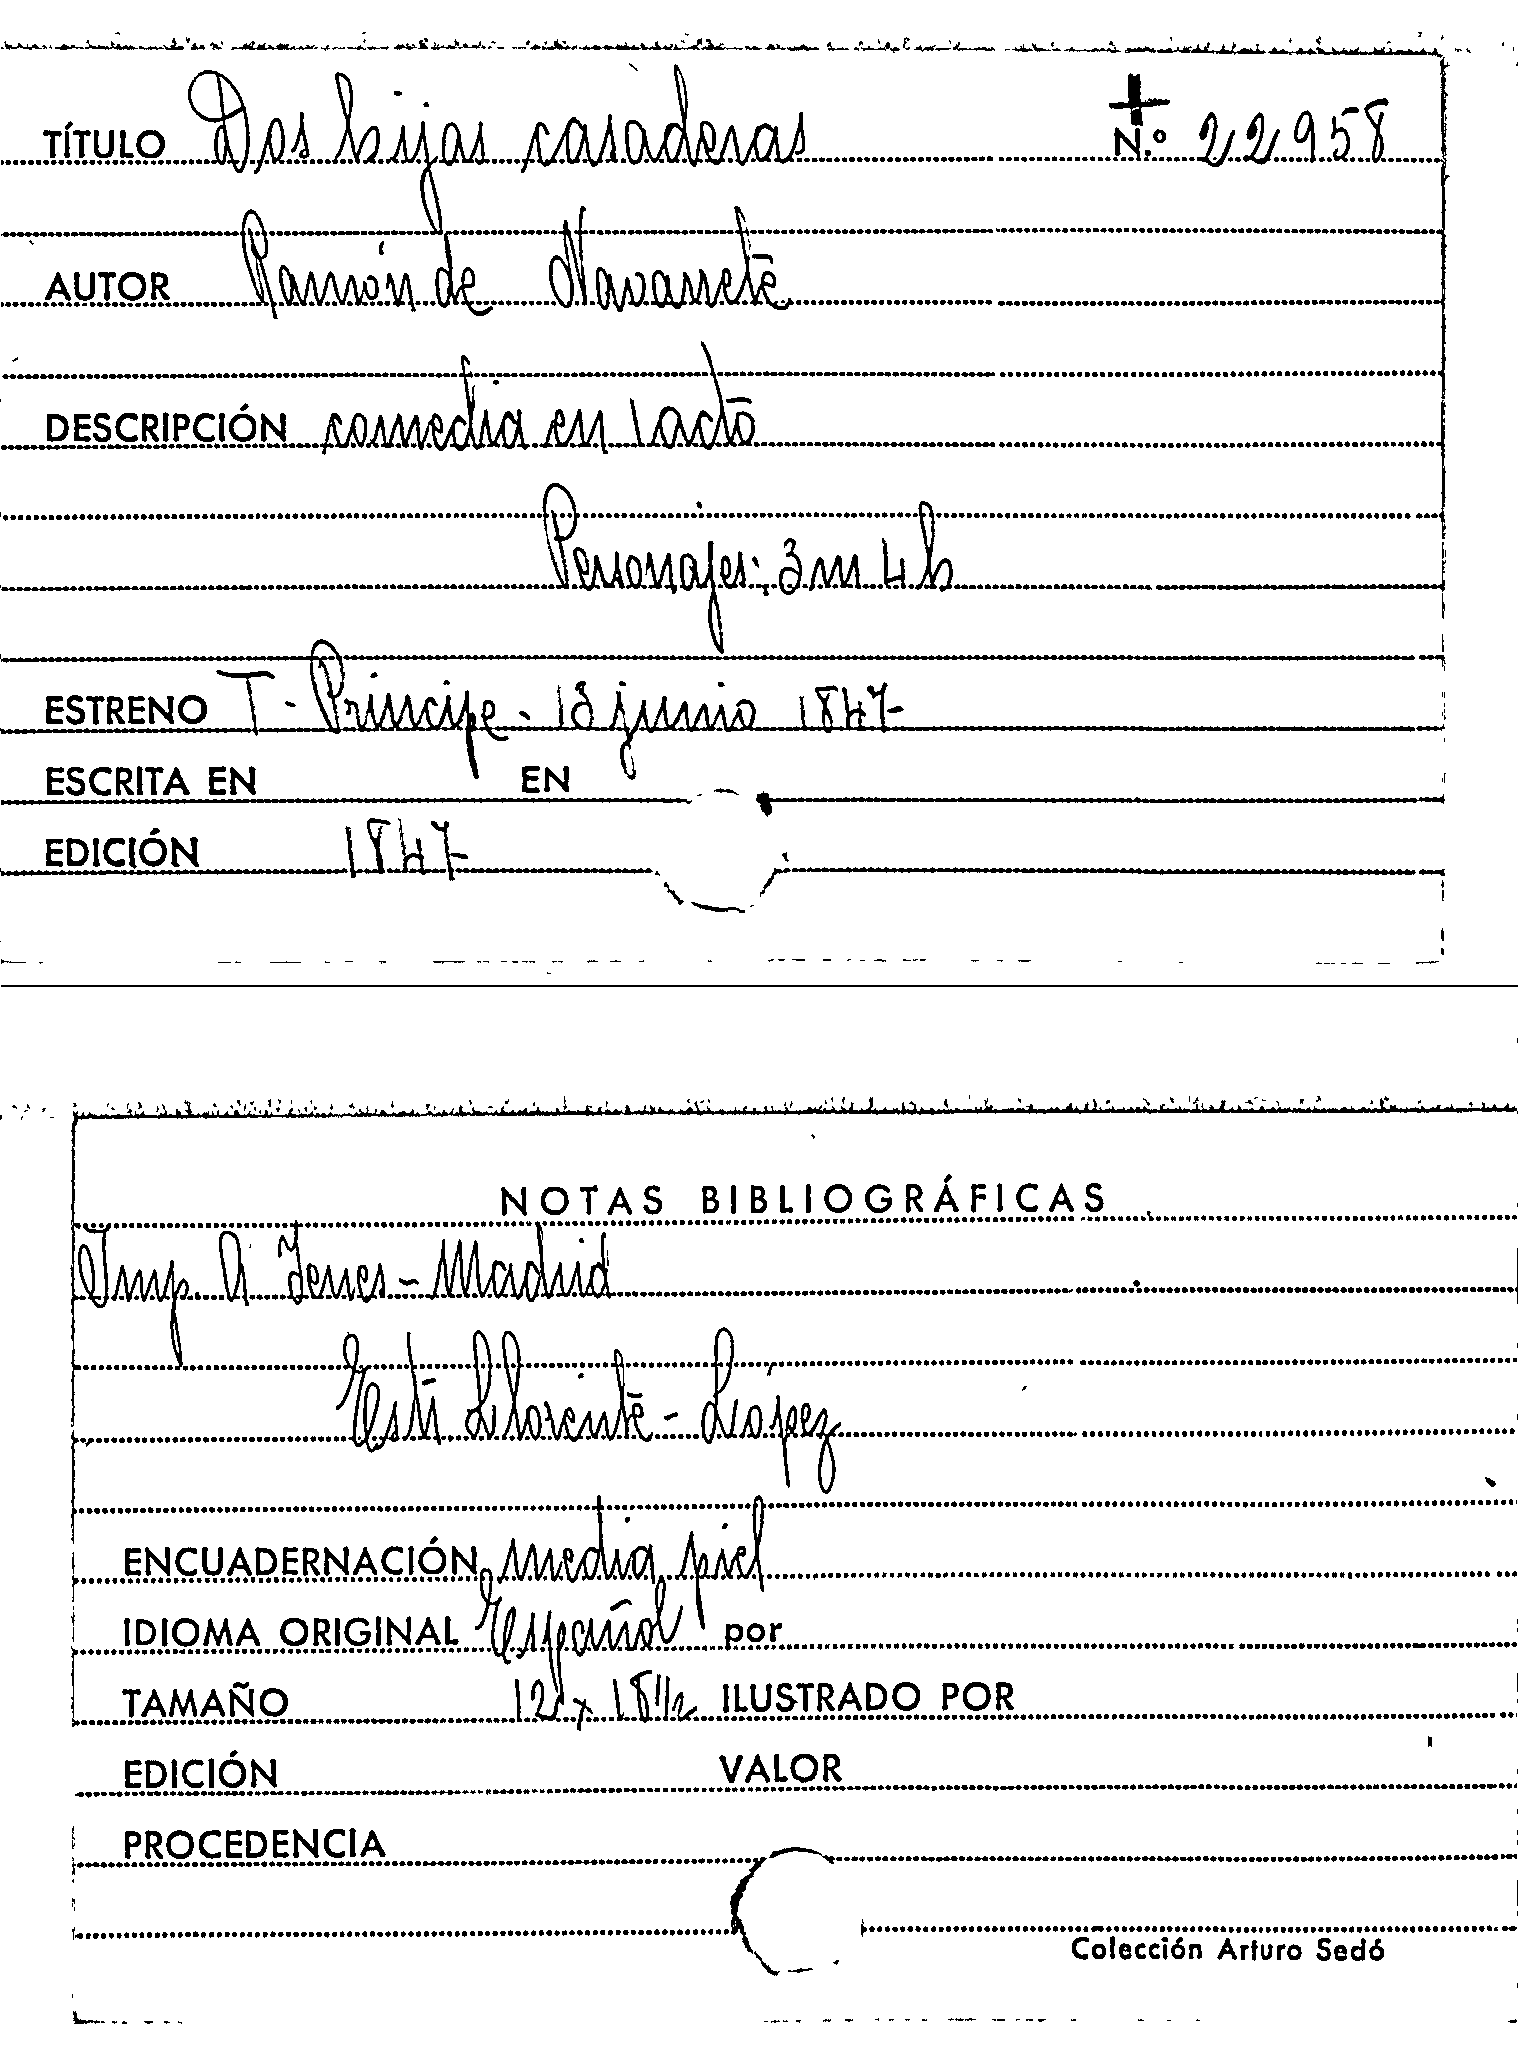 TÍTULO Dos hijas casaderas N.º 22958
AUTOR Ramón de Navarrete
DESCRIPCIÓN comedia en 1 acto
Personajes: 3 m 4 h
ESTRENO T. Príncipe - 13 junio 1847
ESCRITA EN EN
EDICIÓN 1847
NOTAS BIBLIOGRÁFICAS
Imp. A Yenes - Madrid
Est. Llorente - López
ENCUADERNACIÓN media piel
IDIOMA ORIGINAL Español por
TAMAÑO 12 x 18 1/2 ILUSTRADO POR
EDICIÓN VALOR
PROCEDENCIA
Colección Arturo Sedó